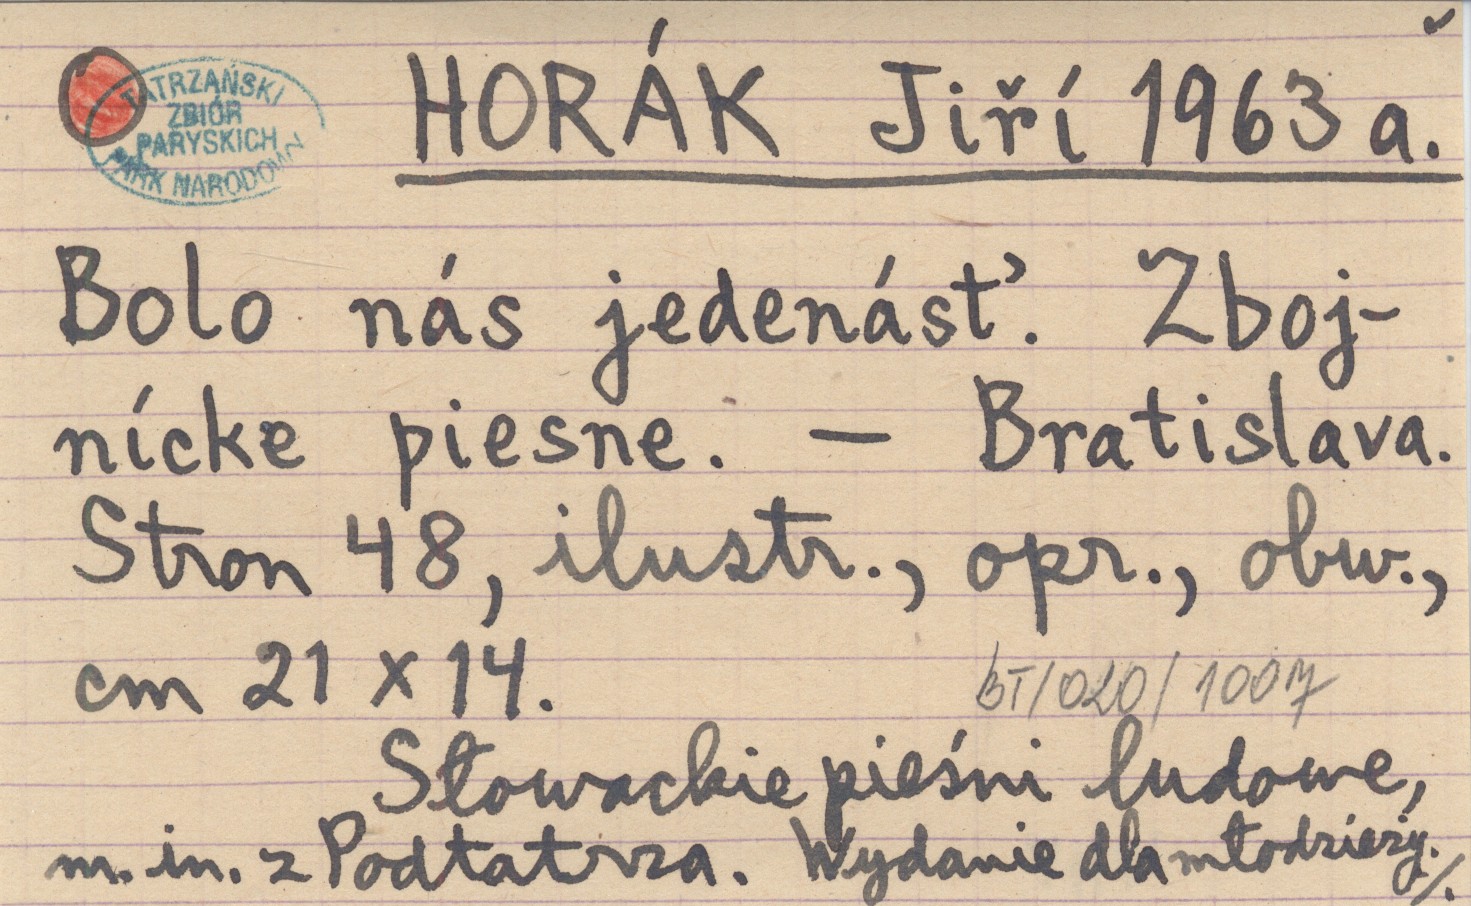 TATRZAŃSKI
ZBIÓR
PARYSKICH
PARK NARODOWY
HORÁK Jiří 1963 a.
Bolo nás jedenásť. Zboj-
nícke piesne. — Bratislava.
Stron 48, ilustr., opr., obw.,
cm 21 x 14.
BT/020/1007
Słowackie pieśni ludowe,
m. in. z Podtatrza. Wydanie dla młodzieży./.